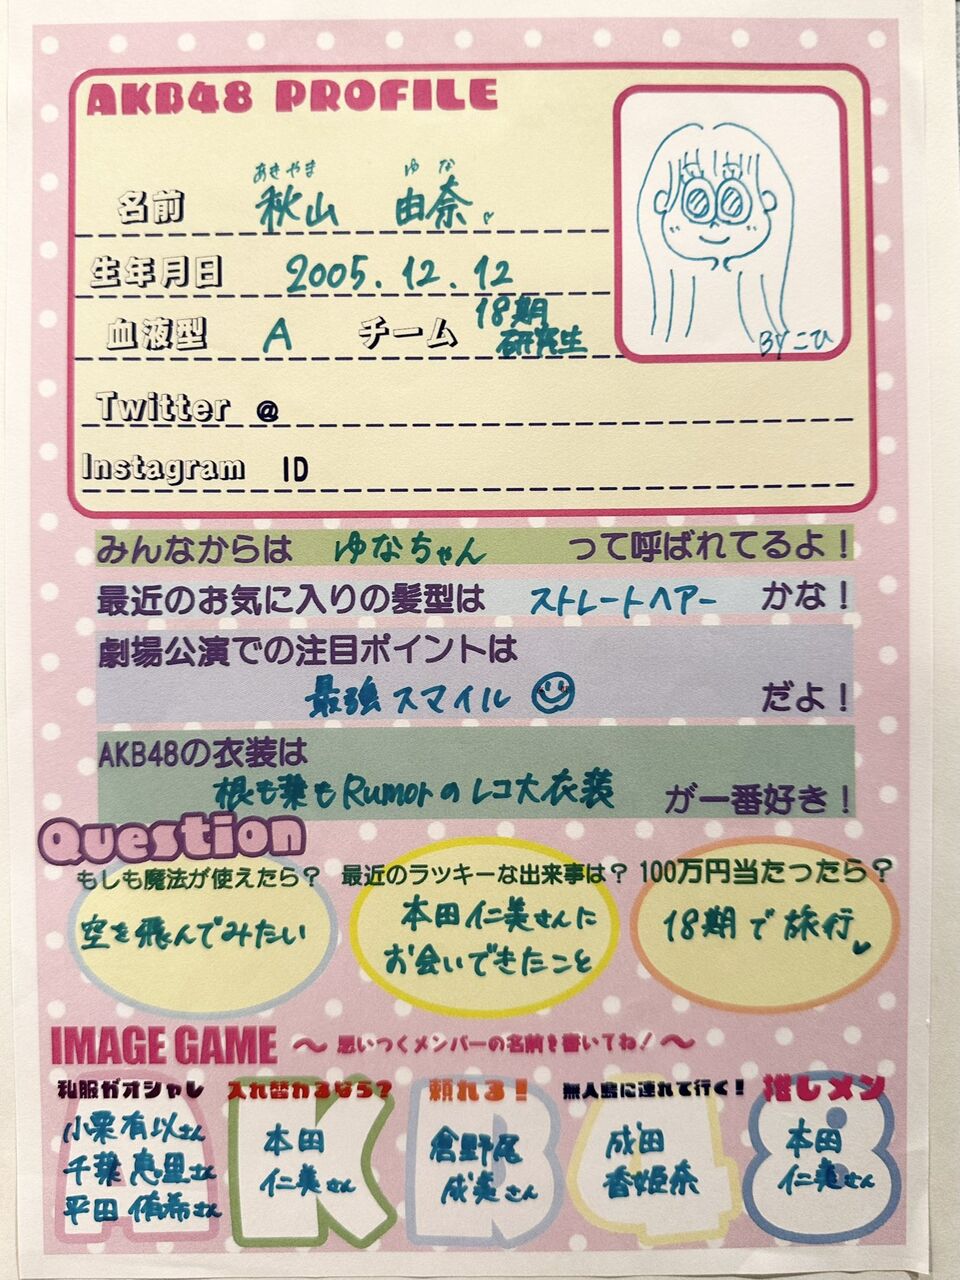 AKB48 PROFILE
あきやま ゆな
名前 秋山 由奈
生年月日 2005.12.12
血液型 A チーム 18期
研究生
BYこひ
Twitter @
Instagram ID
みんなからは ゆなちゃん って呼ばれてるよ！
最近のお気に入りの髪型は ストレートヘアー かな！
劇場公演での注目ポイントは
最強スマイル だよ！
AKB48の衣装は
根も葉もRumorのレコ大衣装 が一番好き！
Question
もしも魔法が使えたら？
空を飛んでみたい
最近のラッキーな出来事は？
本田仁美さんに
お会いできたこと
100万円当たったら？
18期で旅行
IMAGE GAME ～思いつくメンバーの名前を書いてね！～
私服がオシャレ
小栗有以さん
千葉恵里さん
平田侑希さん
入れ替わるなら？
本田
仁美さん
頼れる！
倉野尾
成美さん
無人島に連れて行く！
成田
香姫奈
推しメン
本田
仁美さん
AKB48